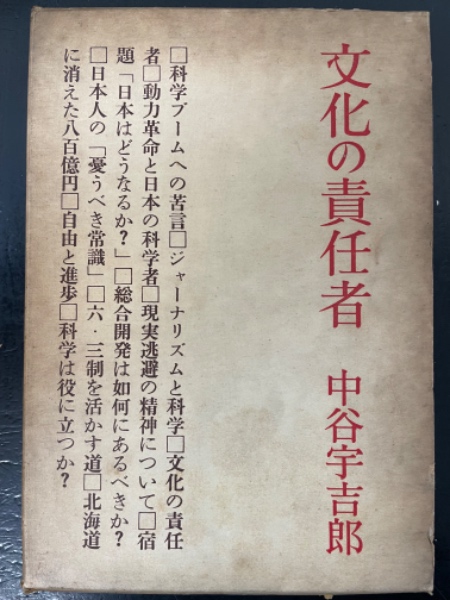 文化の責任者 中谷宇吉郎
□科学ブームへの苦言□ジャーナリズムと科学□文化の責任
者□動力革命と日本の科学者□現実逃避の精神について□宿
題「日本はどうなるか?」□総合開発は如何にあるべきか?
□日本人の「憂うべき常識」□六・三制を活かす道□北海道
に消えた八百億円□自由と進歩□科学は役に立つか?